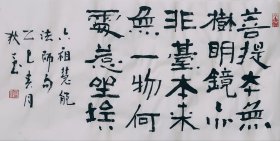 菩提本無
樹明鏡亦
非臺本来
無一物何
處惹塵埃
六祖慧能
法師句
乙巳春月